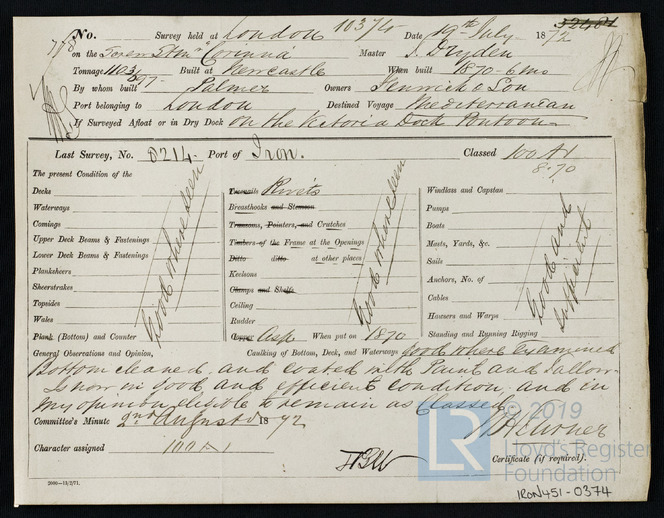 No. Survey held at London 10374 Date 19th July 1872
on the Screw Stmr "Corinna" Master J. Dryden
Tonnage 1103/697 Built at Newcastle When built 1870-6mo
By whom built Palmer Owners Fenwick & Son
Port belonging to London Destined Voyage Mediterranean
If Surveyed Afloat or in Dry Dock On the Victoria Dock Pontoon
Last Survey, No. 8214 Port of Iron. Classed 100A1
8.70
The present Condition of the
Decks
Waterways
Comings
Upper Deck Beams & Fastenings
Lower Deck Beams & Fastenings
Planksheers
Sheerstrakes
Topsides
Wales
Plank (Bottom) and Counter
Good where seen
Treenails Rivets
Breasthooks and Stemson
Transoms, Pointers, and Crutches
Timbers of the Frame at the Openings
Ditto ditto at other places
Keelsons
Clamps and Shelfs
Ceiling
Rudder
Copper When put on 1870
Good where seen
Windlass and Capstan
Pumps
Boats
Masts, Yards, &c.
Sails
Anchors, No. of
Cables
Hawsers and Warps
Standing and Running Rigging
Good and sufficient
General Observations and Opinion, Caulking of Bottom, Deck, and Waterways good where examined
Bottom cleaned and coated with Paint and tallow
Is now in good and efficient condition and in
my opinion eligible to remain as Classed
Committee's Minute 2nd August 1872
Character assigned 100A1
Certificate (if required).
2000—13/2/71.
© 2019
LR Lloyd's Register
Foundation
IRON451-0374